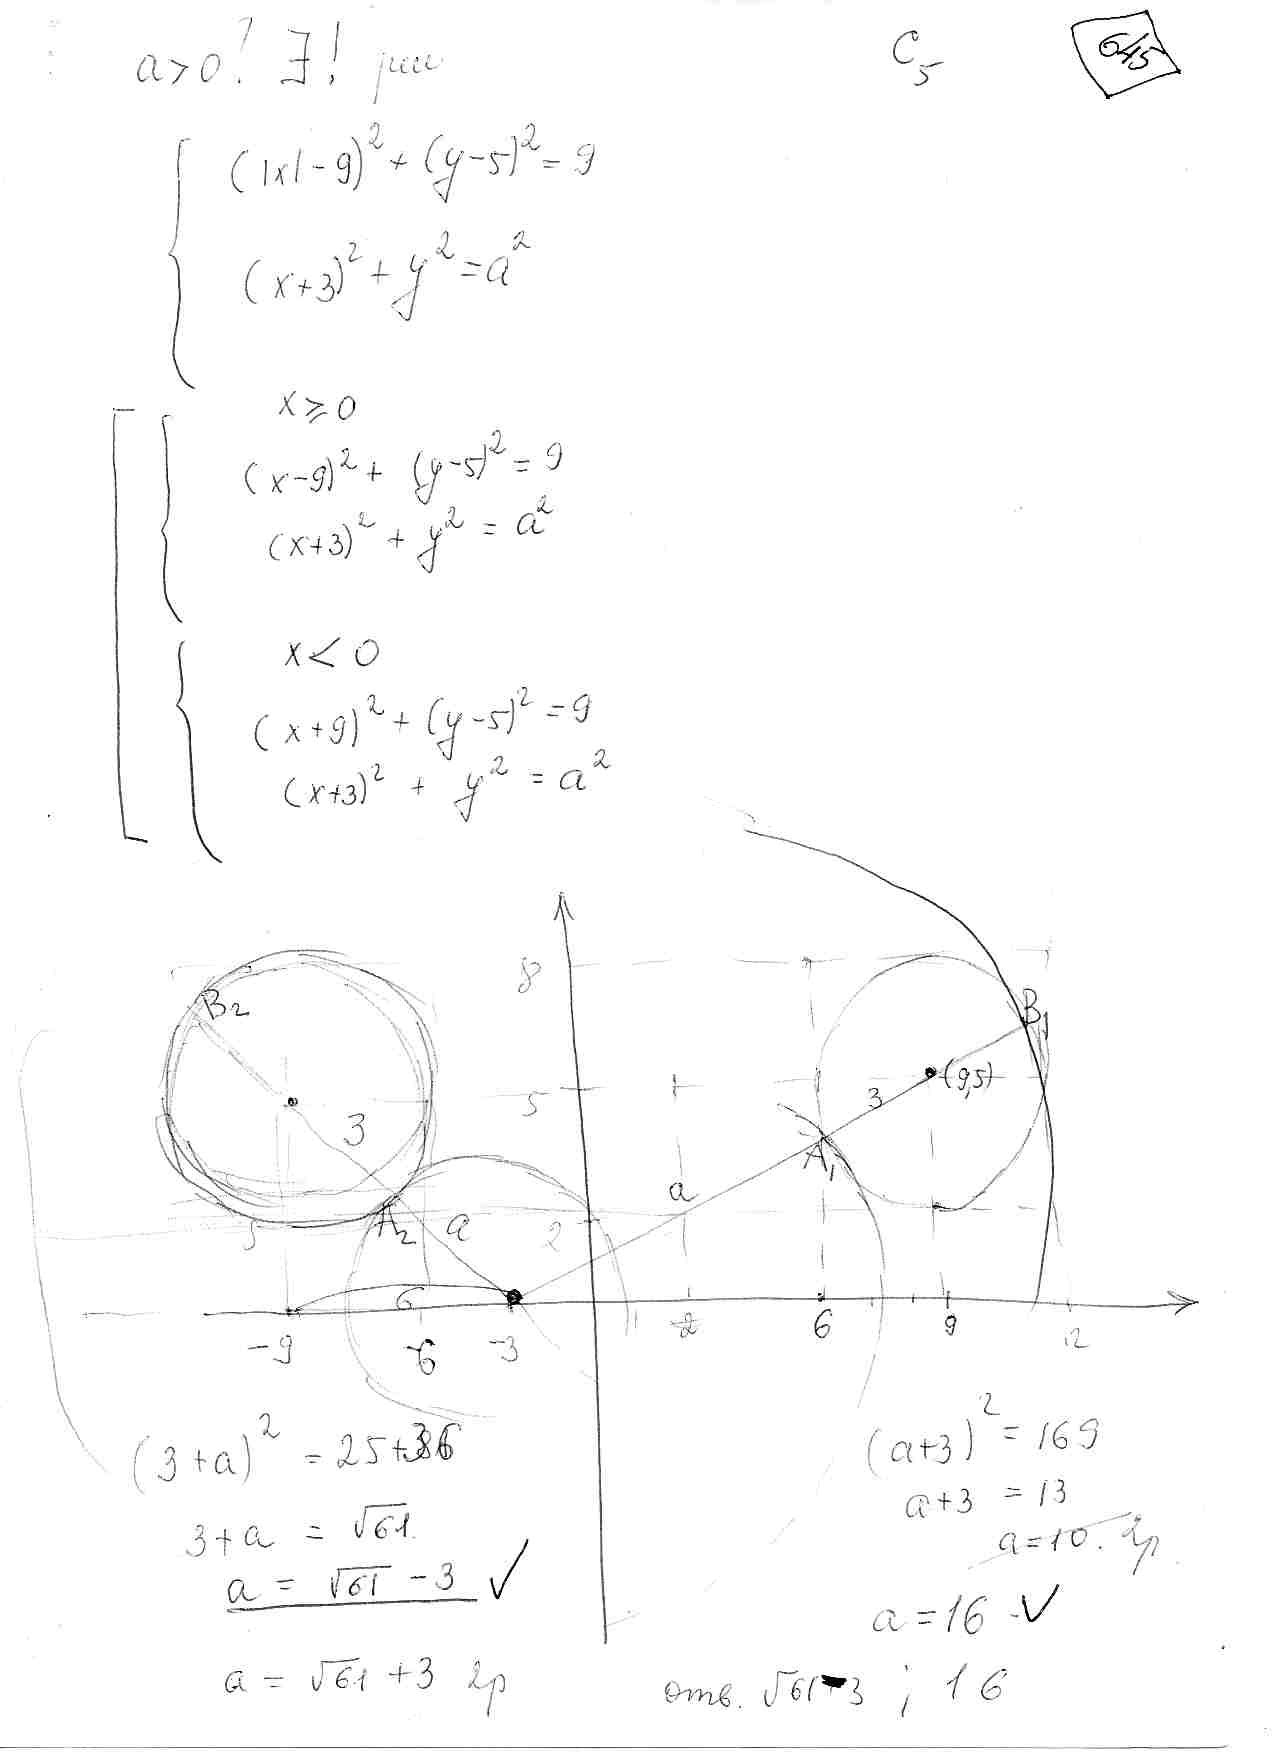 a>0? ∃! реш
C5
6/15
(|x|-9)² + (y-5)² = 9
(x+3)² + y² = a²
x ⩾ 0
(x-9)² + (y-5)² = 9
(x+3)² + y² = a²
x < 0
(x+9)² + (y-5)² = 9
(x+3)² + y² = a²
8
B2
B1
(9,5)
5
3
3
A1
a
A2
a
5
2
6
-9
-6
-3
2
6
9
12
(3+a)² = 25+36
(a+3)² = 169
3+a = √61
a+3 = 13
a=10. 2р.
a = √61 - 3 ✓
a=16 ✓
a = √61 + 3 2р
отв. √61-3 ; 16